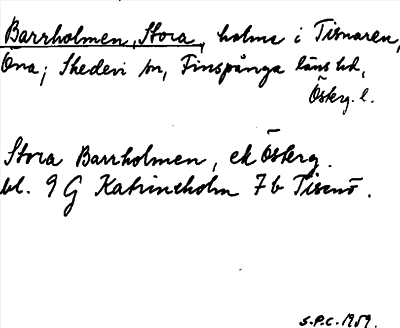 Barrholmen, Stora, holme i Tisnaren,
Öna; Skedevi sn, Finspånga läns hd,
Österg. l.
Stora Barrholmen, ek Österg.
bl. 9 G Katrineholm 7 b Tisenö.
S.P.C. 1959.